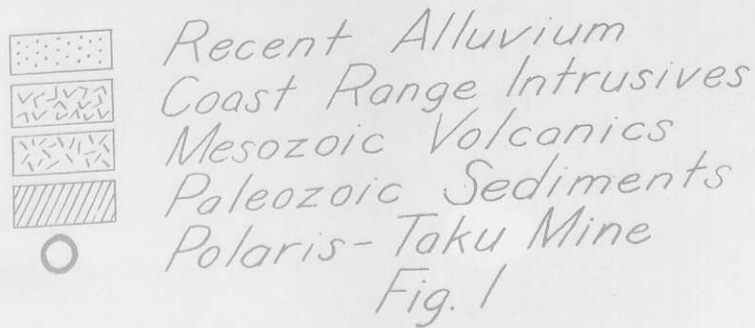 Recent Alluvium
Coast Range Intrusives
Mesozoic Volcanics
Paleozoic Sediments
Polaris-Taku Mine
Fig. 1